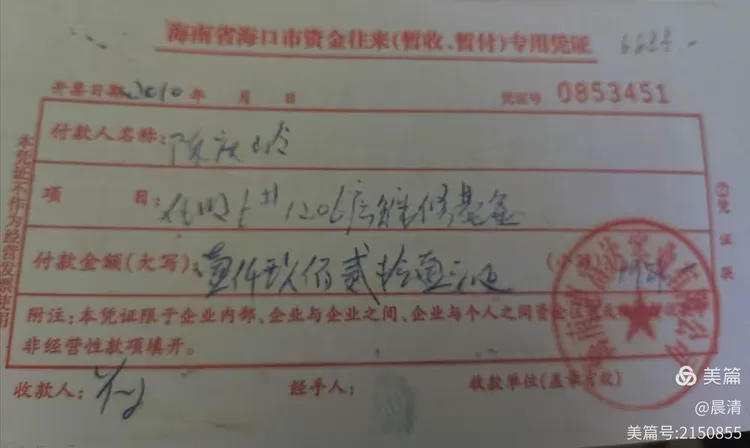 海南省海口市资金往来(暂收、暂付)专用凭证
开票日期2010年 月 日 凭证号 0853451
付款人名称:陈
项 目: 1206房维修基金
付款金额(大写):壹仟玖佰贰拾壹元 (小写)
附注:本凭证限于企业内部、企业与企业之间、企业与个人之间资金往来
非经营性款项填开。
收款人: 经手人: 收款单位(盖章有效)
本凭证不作为经营发票使用
②凭证联
美篇
@晨清
美篇号:2150855